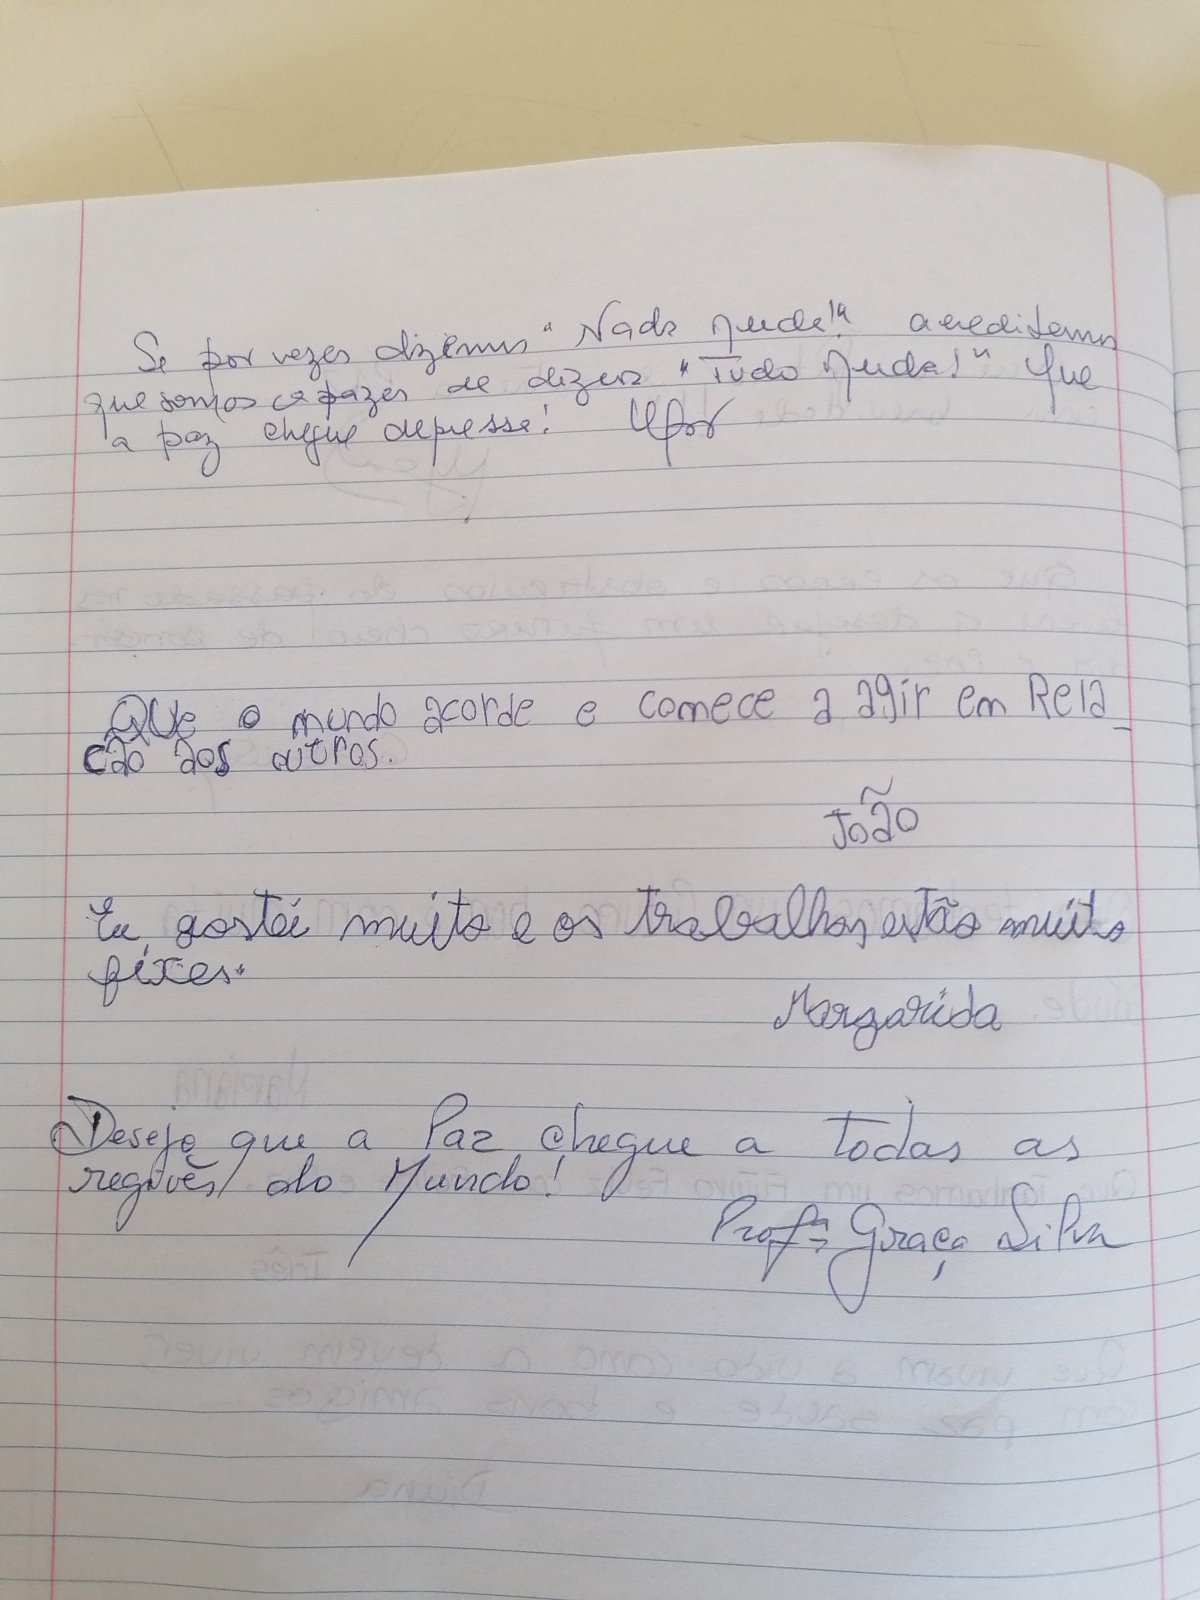 Se por vezes dizemos "Nada muda!" acreditemos
que somos capazes de dizer "Tudo Muda!" Que
a paz chegue depressa!
Que o mundo acorde e comece a agir em Rela_
ção aos outros.
João
Eu gostei muito e os trabalhos estão muito
fixes.
Margarida
Desejo que a Paz chegue a todas as
regiões do Mundo!
Profª Graça Silva